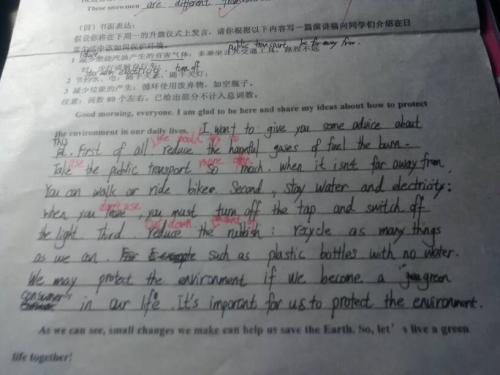 These snowmen are different
(四) 书面表达:
假设你将在下周一的升旗仪式上发言,请你根据以下内容写一篇演讲稿向同学们介绍在日
常生活中该如何保护环境。
public transport be far away from.
1 减少燃烧汽油产生的有害气体:多乘坐公共交通工具,路程不远
turn off
2 节约水、电:随手关水、随手关灯;
3 减少垃圾的产生:循环使用废弃物,如空瓶子。
注意:词数 60 个左右,已给出部分不计入总词数。
Good morning, everyone. I am glad to be here and share my ideas about how to protect
the environment in our daily lives. I want to give you some advice about
it. First of all, reduce the harmful gases of fuel the burn.
Take the public transport so much. when it isn't far away from,
You can walk or ride bike. Second, stay water and electricity:
When you leave, you must turn off the tap and switch off
the light. Third reduce the rubbish: recycle as many things
as we can. such as plastic bottles with no water.
We may protect the environment if we become a green
consumer in our life. It's imporant for us to protect the environment.
As we can see, small changes we make can help us save the Earth. So, let's live a green
life together!